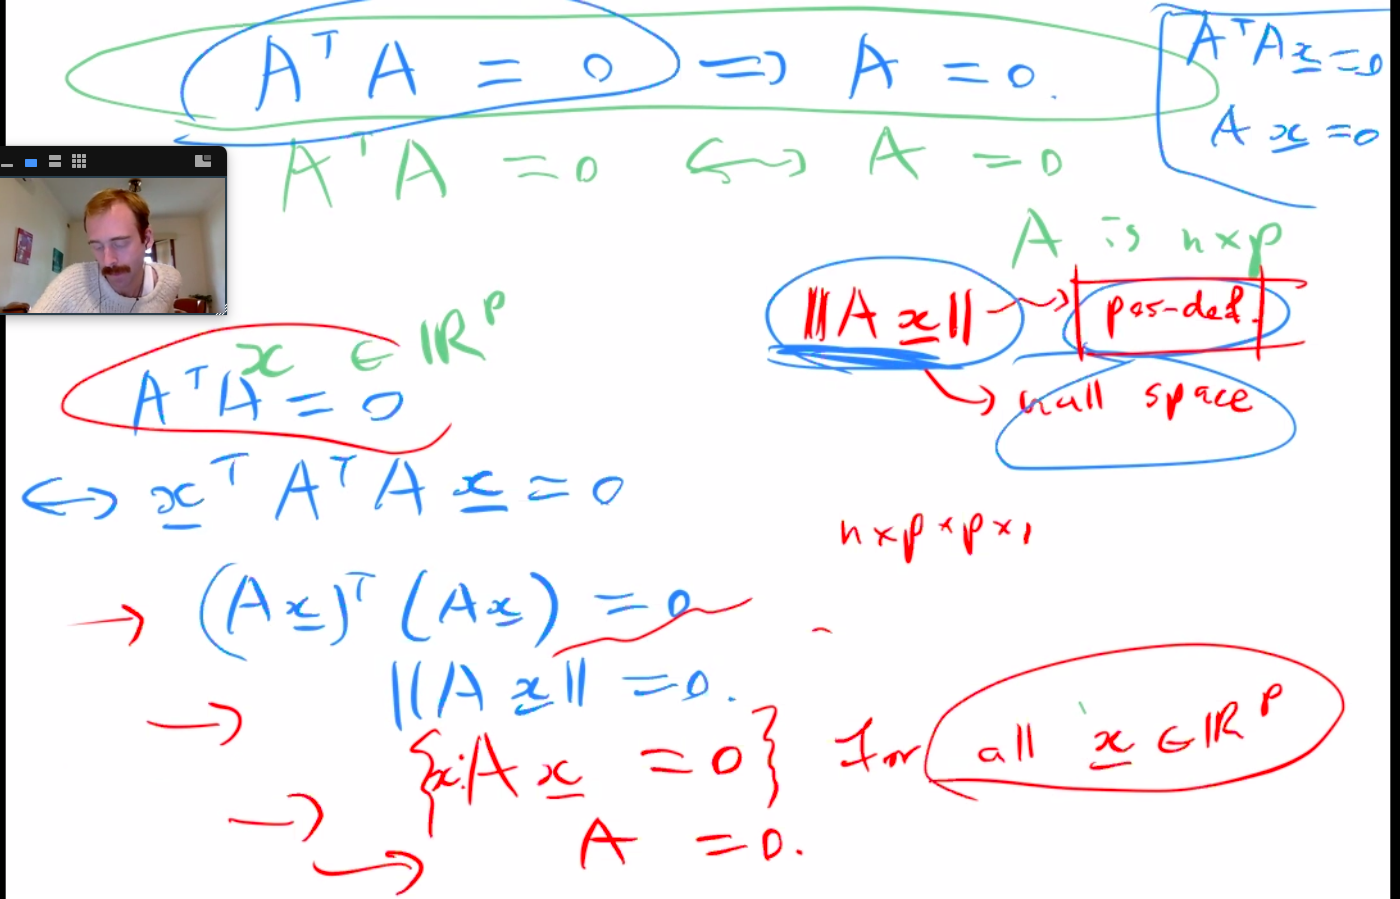 AᵀA = 0 ⇒ A = 0.
AᵀAx = 0
Ax = 0
AᵀA = 0 ↔ A = 0
A is n×p
||Ax|| → pos-def.
→ null space
x ∈ ℝᵖ
AᵀA = 0
↔ xᵀAᵀAx = 0
n×p × p×1
→ (Ax)ᵀ(Ax) = 0
||Ax|| = 0.
→ {x: Ax = 0} for all x ∈ ℝᵖ
→ A = 0.